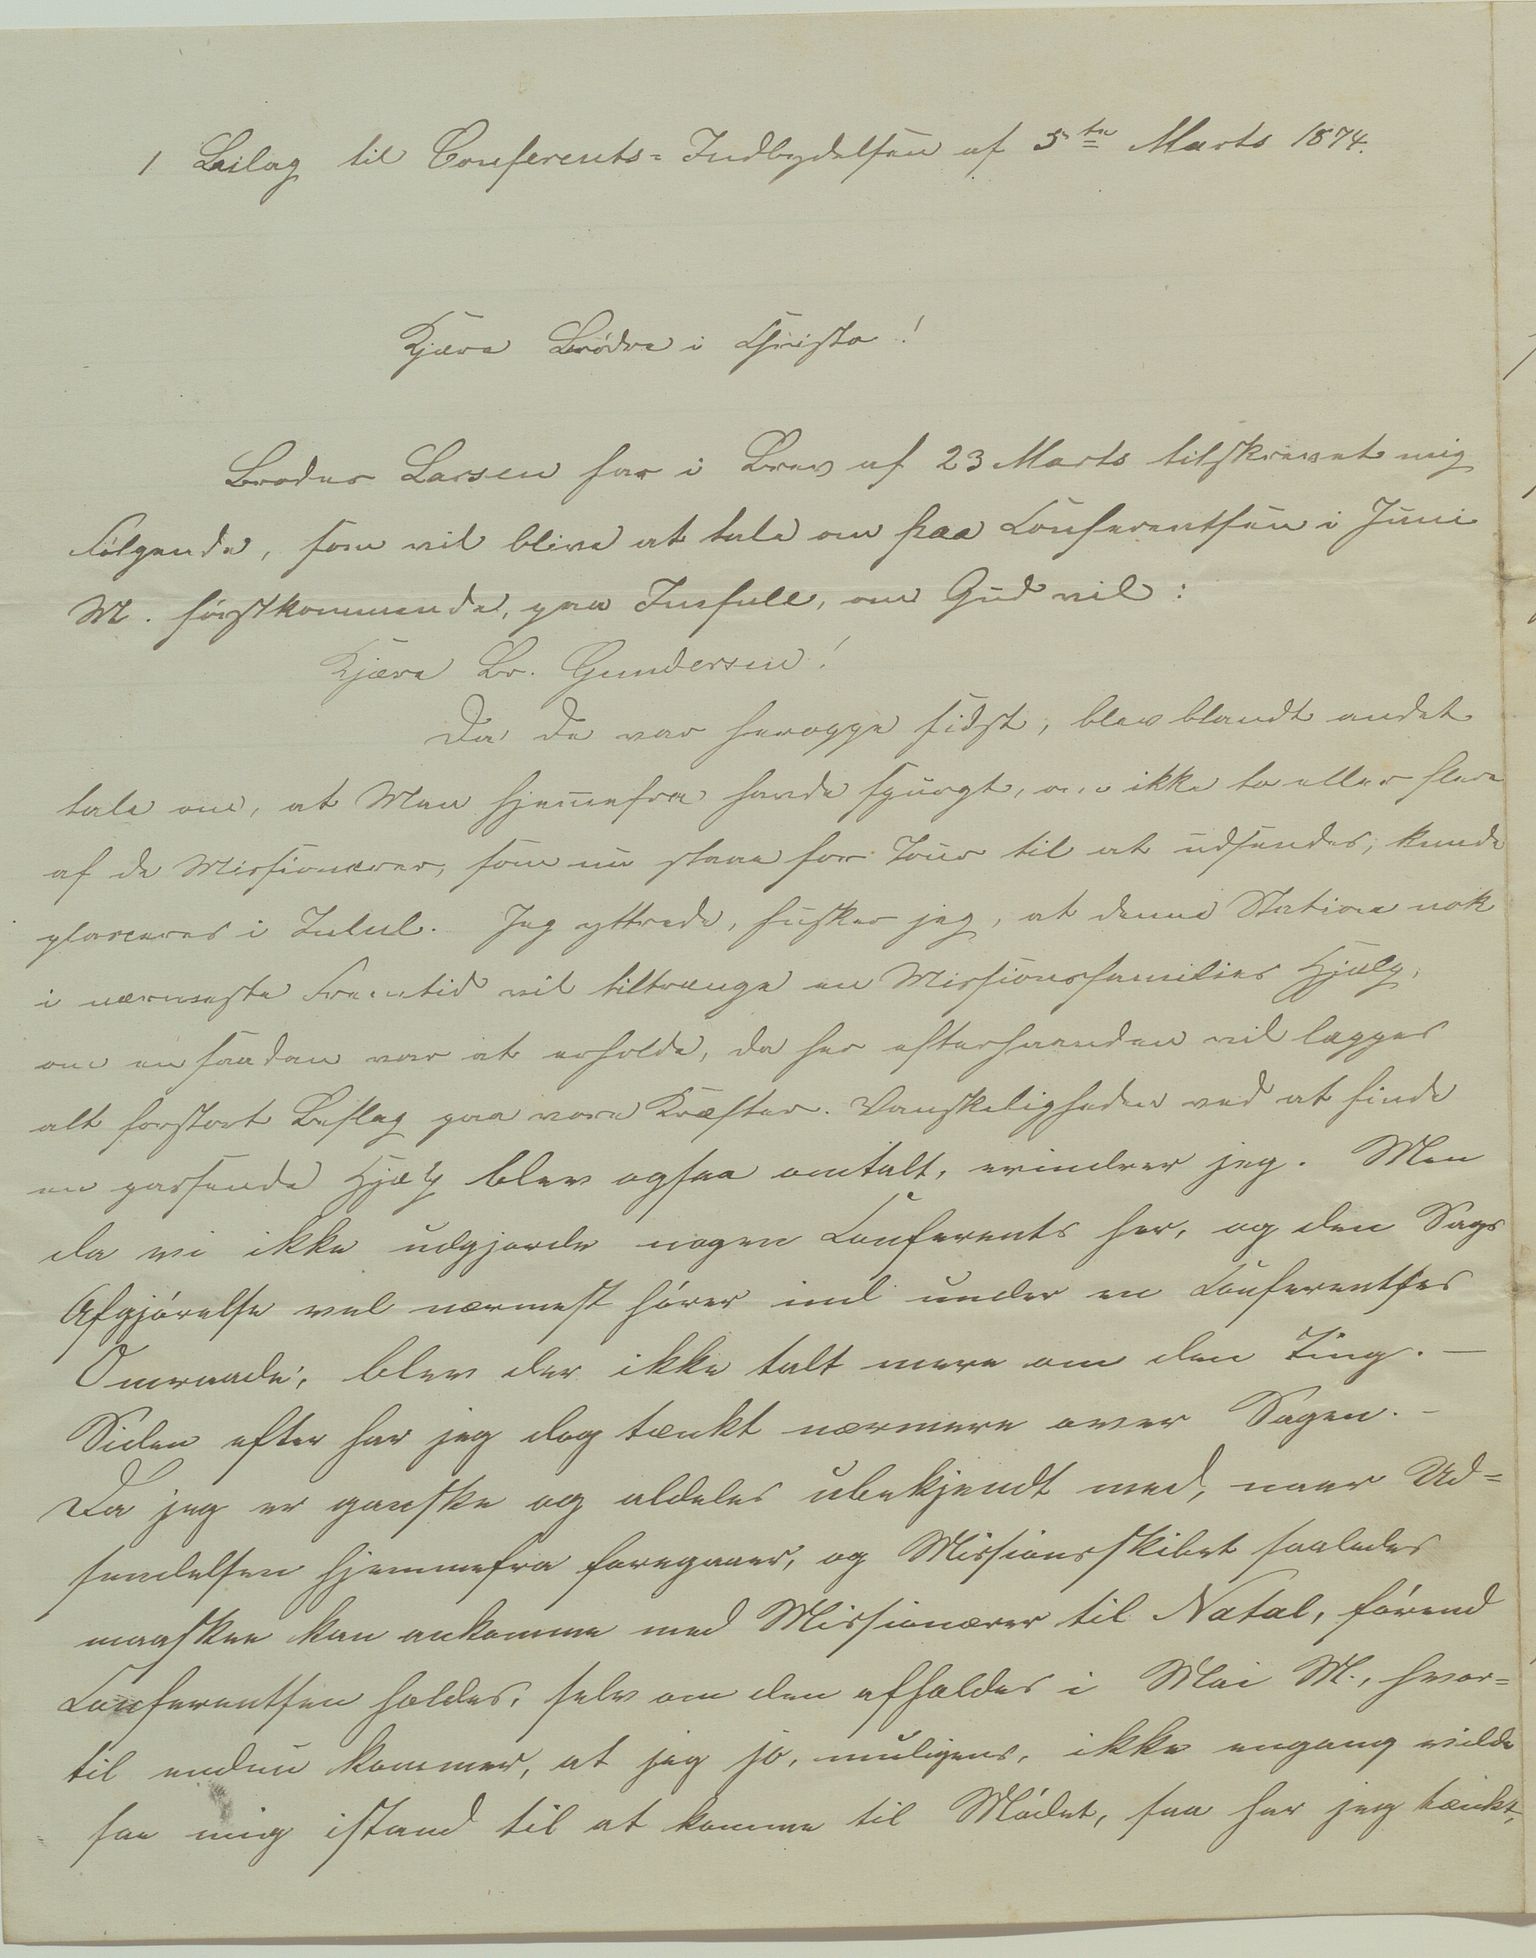 1 Bilag til Conferents-Indbydelsen af 5te Marts 1874.
Kjære Brødre i Christo!
Broder Larsen har i Brev af 23 Marts tilskrevet mig
følgende, som vil blive at tale om paa Conferentsen i Juni
M. førstkommende, paa Inhfule, om Gud vil:
Kjære Br. Gundersen!
Da De var heroppe sidst, blev blandt andet
tale om, at Man hjemmefra havde spurgt, om ikke to eller flere
af de Missionærer, som nu staae for Tour til at udsendes, kunde
placeres i Zulul. Jeg yttrede, husker jeg, at denne Station nok
i nærmeste Fremtid vil tiltrænge en Missionsfamilies Hjælp,
om en saadan var at erholde, da her efterhaanden vil lægges
alt forstort Beslag paa vore Kræfter. Vanskeligheden ved at finde
en passende Hjælp blev ogsaa omtalt, erindrer jeg. Men
da vi ikke udgjorde nogen Conferents her, og den Sags
Afgjørelse vel nærmest hører ind under en Conferentses
Omraade, blev der ikke talt mere om den Ting. —
Siden efter har jeg dog tænkt nærmere over Sagen. —
Da jeg er ganske og aldeles ubekjendt med, naar Ud-
sendelsen hjemmefra foregaaer, og Missionsskibet saaledes
maaskee kan ankomme med Missionærer til Natal, førend
Conferentsen holdes, selv om den afholdes i Mai M., hvor-
til endnu kommer, at jeg jo, muligens, ikke engang vilde
see mig istand til at komme til Mødet, saa har jeg tænkt,